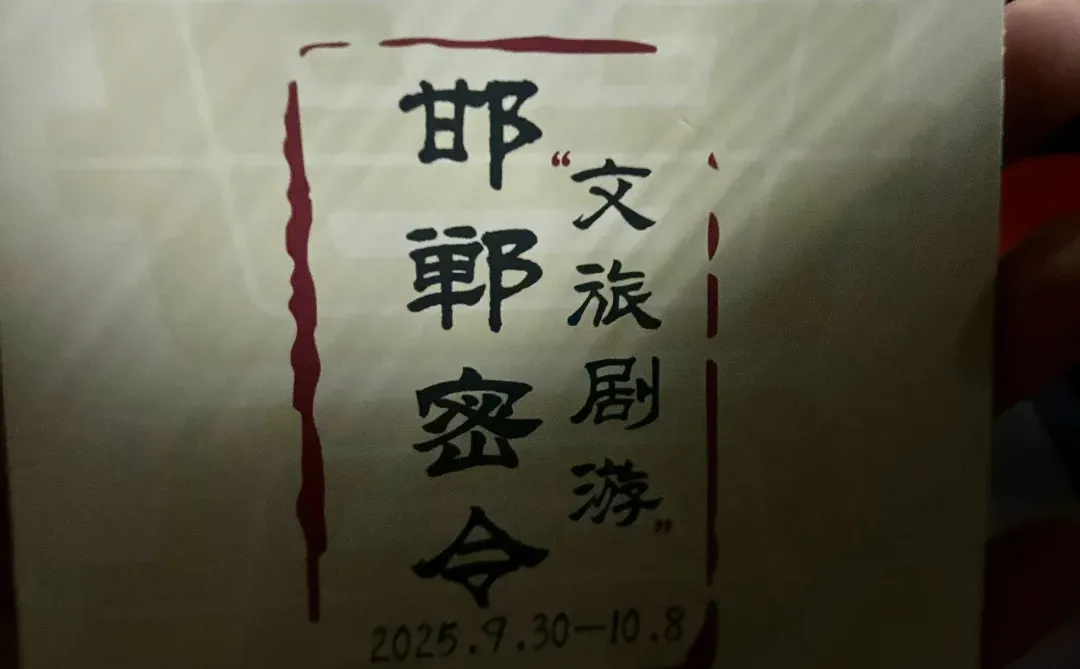 邯郸密令
“文旅剧游”
2025.9.30—10.8